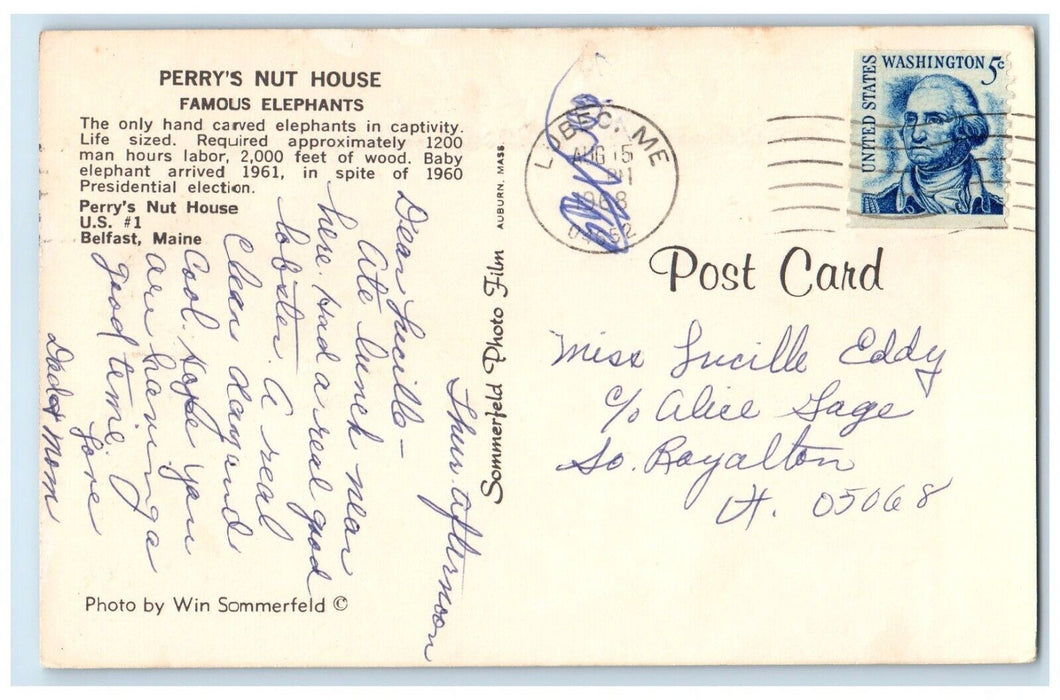 PERRY'S NUT HOUSE
FAMOUS ELEPHANTS
The only hand carved elephants in captivity.
Life sized. Required approximately 1200
man hours labor, 2,000 feet of wood. Baby
elephant arrived 1961, in spite of 1960
Presidential election.
Perry's Nut House
U.S. #1
Belfast, Maine
Thur. afternoon
Dear Lucille—
Ate lunch near
here. Had a real good
lobster. A real
Clear day and
Cool. Hope you
are having a
good time.
Love
Dad & Mom
Photo by Win Sommerfeld ©
Sommerfeld Photo Film AUBURN, MASS.
LUBEC, ME
AUG 15
1968
UNITED STATES
WASHINGTON 5c
Post Card
Miss Lucille Eddy
c/o Alice Sage
So. Royalton
Vt. 05068